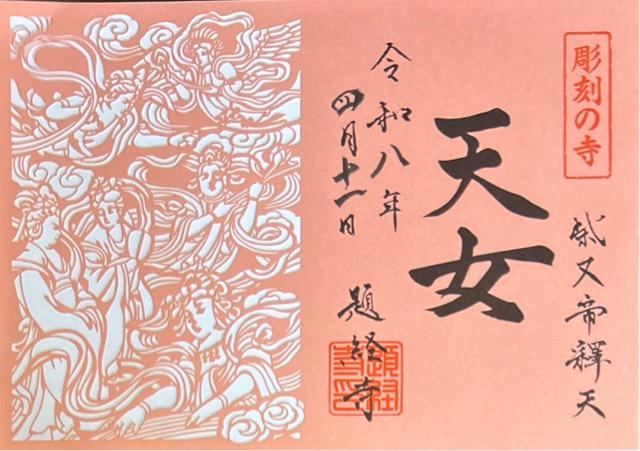 彫刻の寺
柴又帝釋天
天女
令和八年
四月十一日
題経寺